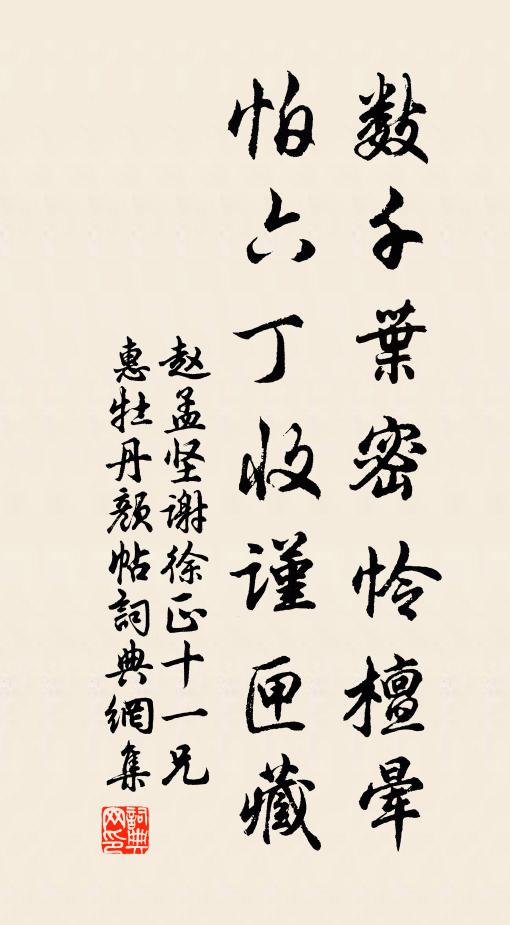 数千葉密怜檀暈
怕六丁收謹匣藏
赵孟坚谢徐正十一兄
惠牡丹颜帖詞典網集
詞典
网印